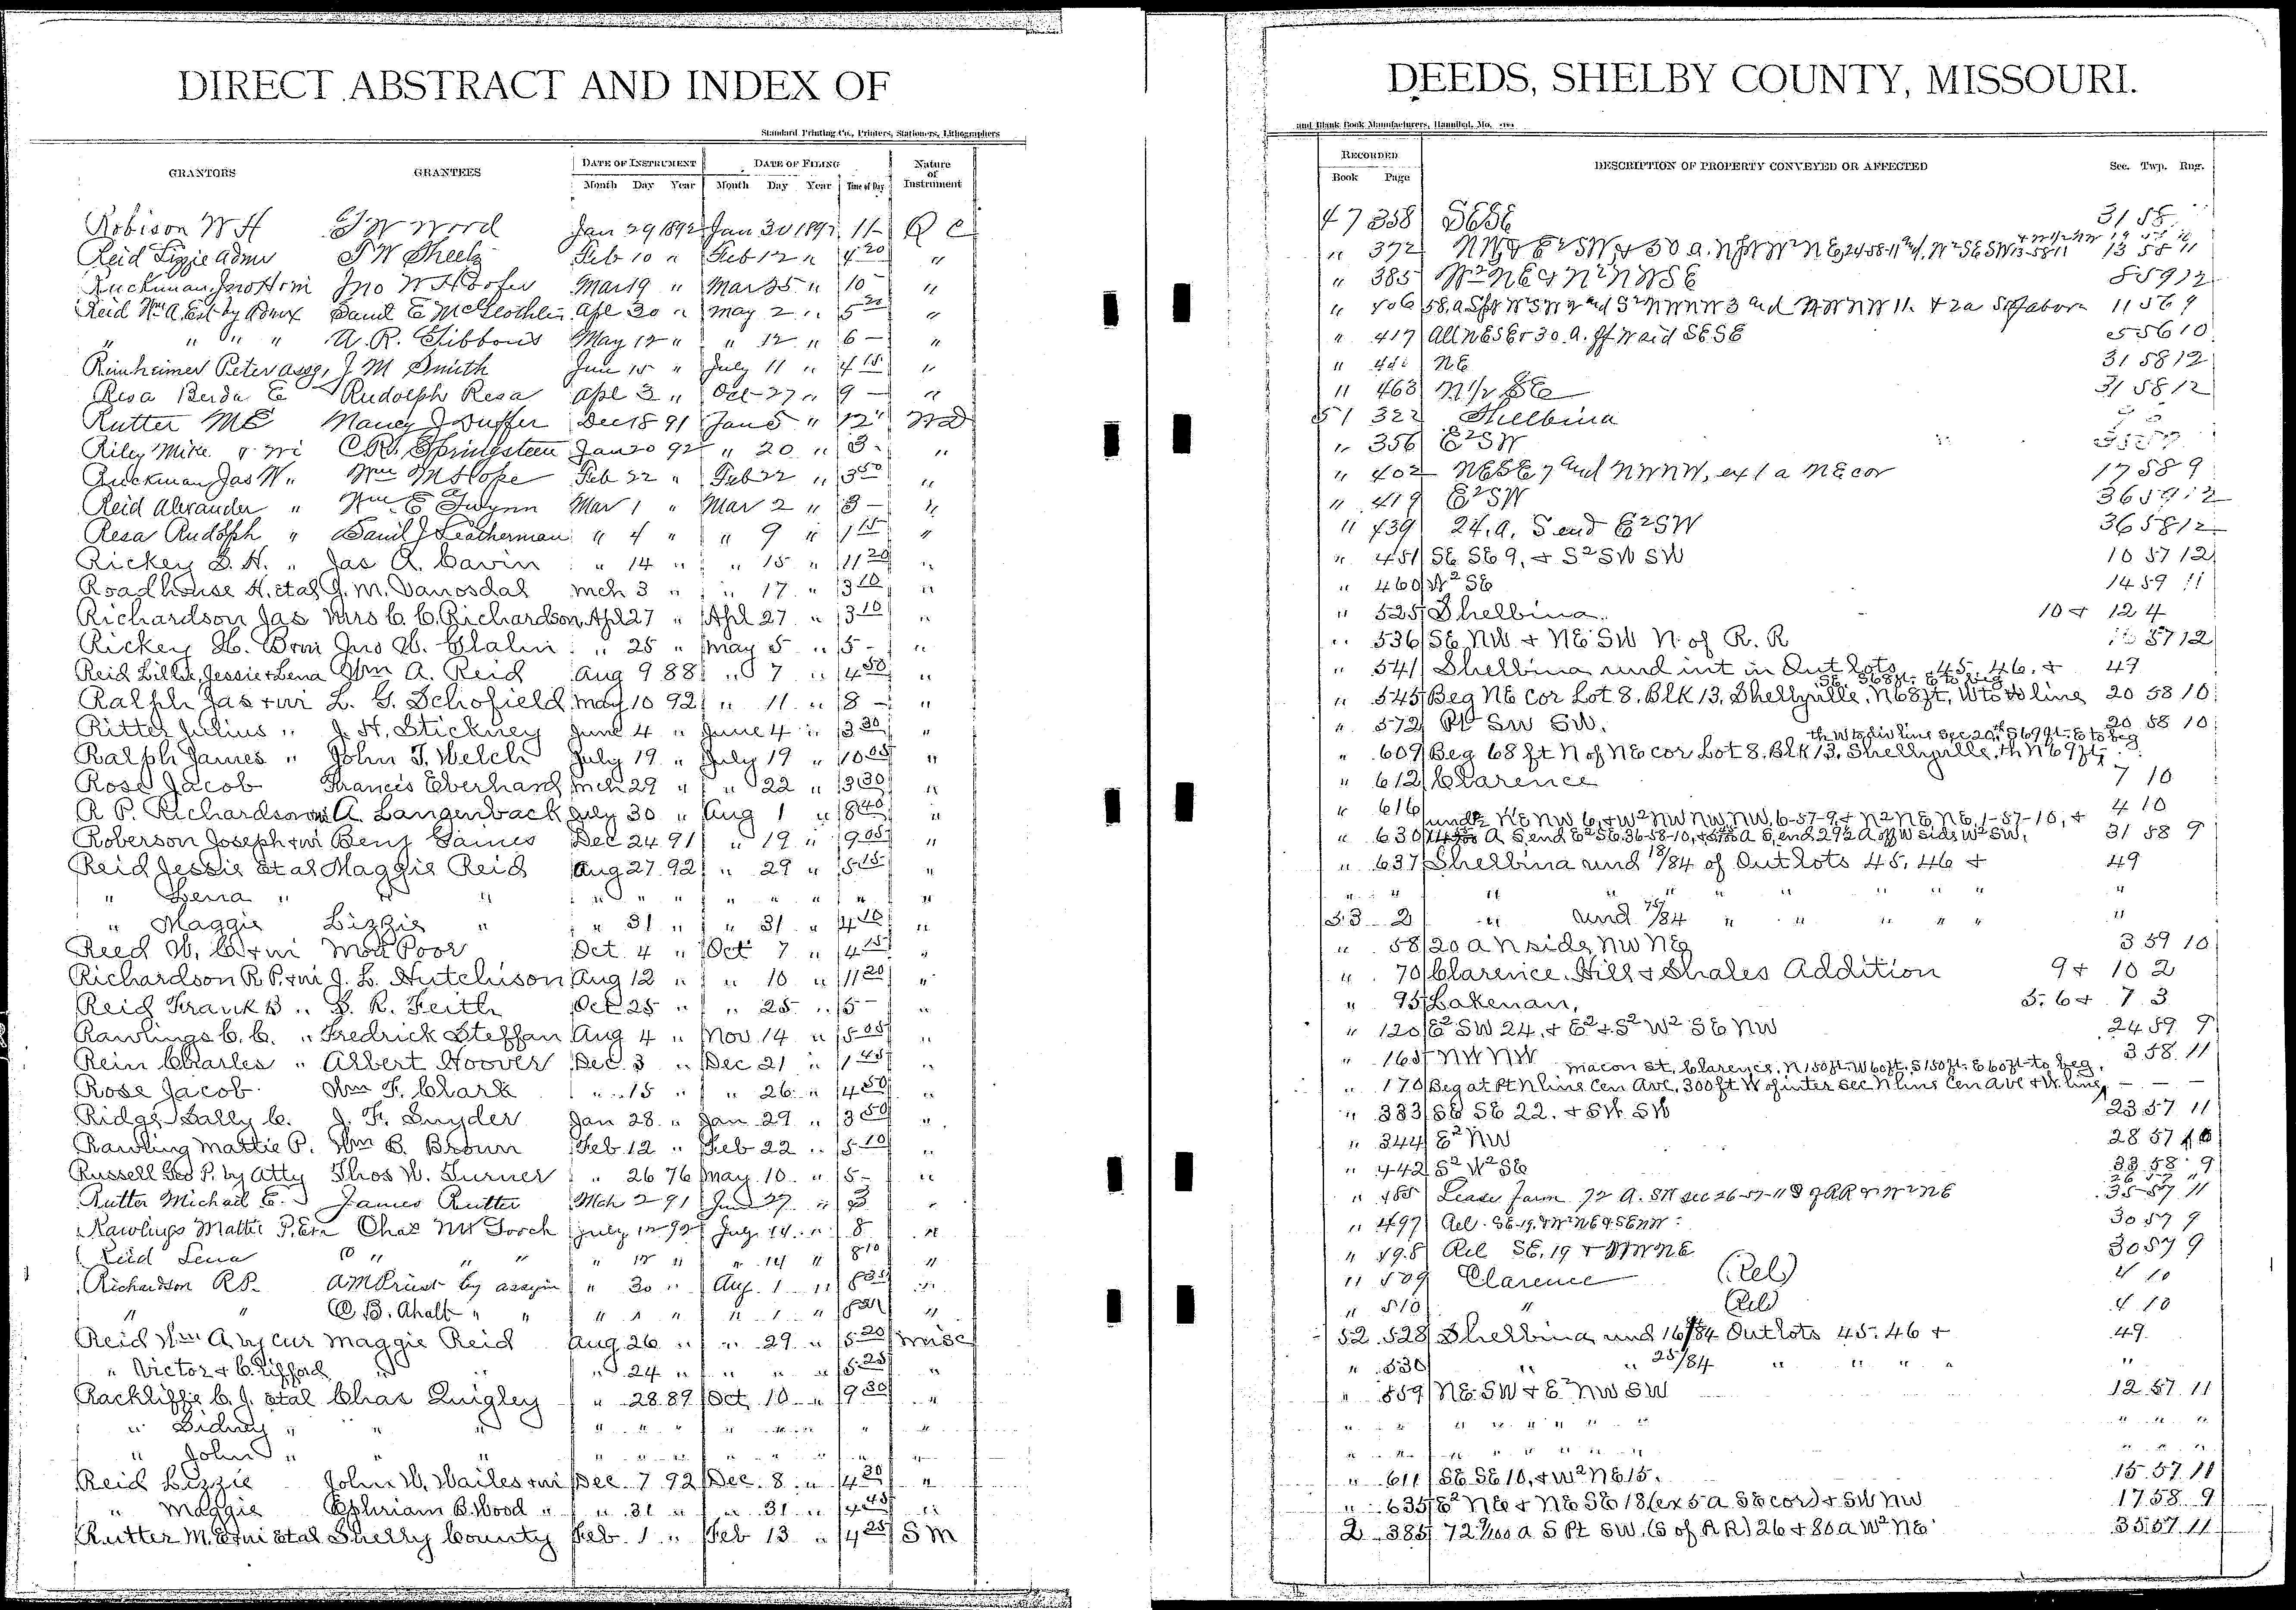 DIRECT ABSTRACT AND INDEX OF
Standard Printing Co., Printers, Stationers, Lithographers
GRANTORS GRANTEES DATE OF INSTRUMENT DATE OF FILING Nature of Instrument
Month Day Year Month Day Year Time of Day
Robison W H T W Wood Jan 29 1892 Jan 30 1892 11- Q C
Reid Lizzie Admr J W Sheetz Feb 10 " Feb 12 " 4 20 "
Ruckman Jno H & wi Jno W Hoofer Mar 19 " Mar 25 " 10 - "
Reid Wm A Est by Admx Saml E McGlothlin Apl 30 " May 2 " 5 20 "
" " " " A. R. Gibbons May 12 " " 12 " 6 - "
Rimheimer Peter assg. J M Smith Jun 15 " July 11 " 4 15 "
Resa Berda E Rudolph Resa Apl 3 " Oct 27 " 9 - "
Rutter M E Nancy J Duffer Dec 18 91 Jan 5 " 12 " WD
Riley Mike & wi C. R. Springsteen Jan 20 92 " 20 " 3 - "
Ruckman Jas W " Wm M Hope Feb 22 " Feb 22 " 3 50 "
Reid Alexander " Wm E Gwynn Mar 1 " Mar 2 " 3 - "
Resa Rudolph " Daniel J Leatherman " 4 " " 9 " 1 15 "
Rickey D. H. " Jas A. Cavin " 14 " " 15 " 11 20 "
Roadhouse H. etal J. M. Vanosdal Mch 3 " " 17 " 3 10 "
Richardson Jas Mrs C. C. Richardson Apl 27 " Apl 27 " 3 10 "
Rickey H. D & wi Jno W. Glahn " 25 " May 5 " 5 - "
Reid Lillie, Jessie & Lena Wm A. Reid Aug 9 88 " 7 " 4 50 "
Ralph Jas & wi L. G. Schofield May 10 92 " 11 " 8 - "
Ritter Julius " J. H. Stickney June 4 " June 4 " 3 30 "
Ralph James " John T. Welch July 19 " July 19 " 10 05 "
Rose Jacob Francis Eberhard Mch 29 " " 22 " 3 30 "
R P. Richardson & wi A. Langenback July 30 " Aug 1 " 8 40 "
Roberson Joseph & wi Benj Gaines Dec 24 91 " 19 " 9 05 "
Reid Jessie et al Maggie Reid Aug 27 92 " 29 " 5 15 "
" Lena " " " " " " " " " "
" Maggie Lizzie " " 31 " " 31 " 4 10 "
Reed W. C & wi Mat Poor Oct 4 " Oct 7 " 4 15 "
Richardson R. P. & wi J. L. Hutchison Aug 12 " " 10 " 11 20 "
Reid Frank B " S. R. Feith Oct 25 " " 25 " 5 - "
Rawlings C. C. " Fredrick Steffan Aug 4 " Nov 14 " 5 05 "
Rein Charles " Albert Hoover Dec. 3 " Dec 21 " 1 45 "
Rose Jacob Wm F. Clark " 15 " " 26 " 4 50 "
Ridge Sally C. J. F. Snyder Jan 28 " Jan 29 " 3 50 "
Rawling Mattie P. Wm B. Brown Feb 12 " Feb 22 " 5 10 "
Russell Geo P. by Atty Thos W. Turner " 26 76 May 10 " 5 - "
Rutter Michael E. James Rutter Mch 2 91 Jun 27 " 3 "
Rawlings Mattie P. Chas July 12 92 July 14 " 8 "
Reid Lena " " " 12 " " 14 " 8 10 "
Richardson R P. A M Priest by assign " 30 " Aug. 1 " "
" " C. B. Ahalt " " " " " " 1 " "
Reid Wm A by Cur Maggie Reid Aug 26 " " 29 " 5 20 Misc
" Victor & Clifford " " 24 " " " " 5 25 "
Rackliffe C. J. etal Chas Quigley " 28 89 Oct 10 " 9 30 "
" Sidney " " " " " " " " " " "
" John " " " " " " " " " " "
Reid Lizzie John W. Wailes & wi Dec. 7 92 Dec. 8 " 4 20 "
" Maggie Ephriam B. Wood " " 31 " " 31 " 4 45 "
Rutter M. E & wi etal Shelby County Feb 1 " Feb 13 " 4 25 S M
DEEDS, SHELBY COUNTY, MISSOURI.
and Blank Book Manufacturers, Hannibal, Mo.
RECORDED DESCRIPTION OF PROPERTY CONVEYED OR AFFECTED Sec. Twp. Rng.
Book Page
47 358 SESE 31 58
" 372 13 58 11
" 385 W2 NE & N2 NWSE 8 59 12
" 406 11 56 9
" 417 All NESE & 30 a. off W SESE 5 56 10
" NE 31 58 12
" 463 N 1/2 SE 31 58 12
51 322 Shelbina
" 356 E2 SW
" 402 NESE 7 and NWNW, ex 1 a NE cor 17 58 9
" 419 E2 SW 36 59 12
" 439 24. a. S end E2 SW 36 58 12
" 451 SE SE 9, & S2 SW SW 10 57 12
" 460 W2 SE 14 59 11
" 525 Shelbina 10 & 12 4
" 536 SE NW & NE SW N of R. R 57 12
" 541 Shelbina und int in Out Lots 45, 46, & 49
SE. S68ft. E to beg
" 545 Beg NE cor Lot 8, Blk 13, Shelbyville, N68ft, W to W line 20 58 10
" 572 Pt SW SW. 20 58 10
th W to div line Sec 20, th S 69 ft. E to beg
" 609 Beg 68 ft N of NE cor Lot 8, Blk 13, Shelbyville, th N 69 ft,
" 612 Clarence 7 10
" 616 4 10
und 1/2 NE NW 6, & W2 NW NW NW, 6-57-9, & N2 NE NE, 1-57-10, &
" 630 A S end E2 SE 36-58-10, & A S, end 29 1/2 A off W side W2 SW, 31 58 9
" 637 Shelbina und 18/84 of Out lots 45, 46 & 49
" " " " " " " " "
53 2 " und /84 " " " " " "
" 58 20 a N side NW NE 3 59 10
" 70 Clarence, Hill & Shales Addition 9 & 10 2
" 95 Lakenan, 5. 6 & 7 3
" 120 E2 SW 24, & E2 & S2 W2 SE NW 24 59 9
" 165 NW NW 3 58 11
Macon St, Clarence, N 150ft. W 60ft. S 150ft. E 60ft to beg.
" 170 Beg at Pt N line Cen Ave, 300 ft W of inter sec N line Cen Ave & W. line — — —
" 333 SE SE 22. & SW SW 23 57 11
" 344 E2 NW 28 57
" 442 S2 W2 SE 33 58 9
26 57 "
" 485 Lease farm 72 A. SW sec 26-57-11 S of RR & W2 NE 35 57 11
" 497 Rel. SE 19, & W2 NE & SENW 30 57 9
" 498 Rel SE, 19 & NWNE 30 57 9
" 509 Clarence (Rel) 4 10
" 510 " (Rel) 4 10
52 528 Shelbina und 16/84 Out lots 45. 46 & 49.
" 530 " " 25/84 " " " " "
" 559 NE SW & E2 NW SW 12 57 11
" " " " " " " " " "
" " " " " " " " " "
" 611 SE SE 10, & W2 NE 15. 15 57 11
" 635 E2 NE & NE SE 18 (ex 5 a SE cor) & SW NW 17 58 9
2 385 72 a S Pt SW. (S of R R) 26 & 80 a W2 NE 35 57 11